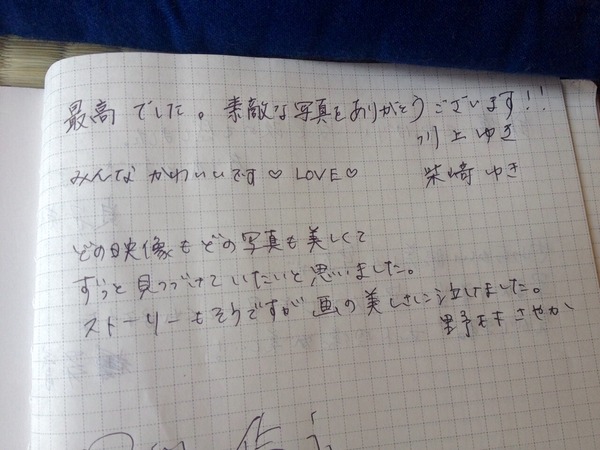 最高でした。素敵な写真をありがとうございます!!
川上ゆき
みんなかわいいです♡ LOVE♡
柴崎ゆき
どの映像もどの写真も美しくて
ずっと見つづけていたいと思いました。
ストーリーもそうですが画の美しさに泣けました。
さやか